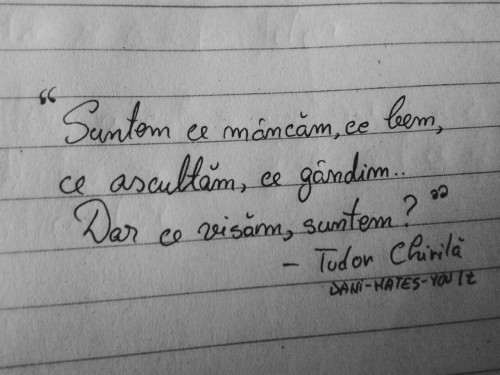 “Suntem ce mâncăm, ce bem,
ce ascultăm, ce gândim..
Dar ce visăm, suntem?”
- Tudor Chirilă
DANI-HATES-YOU